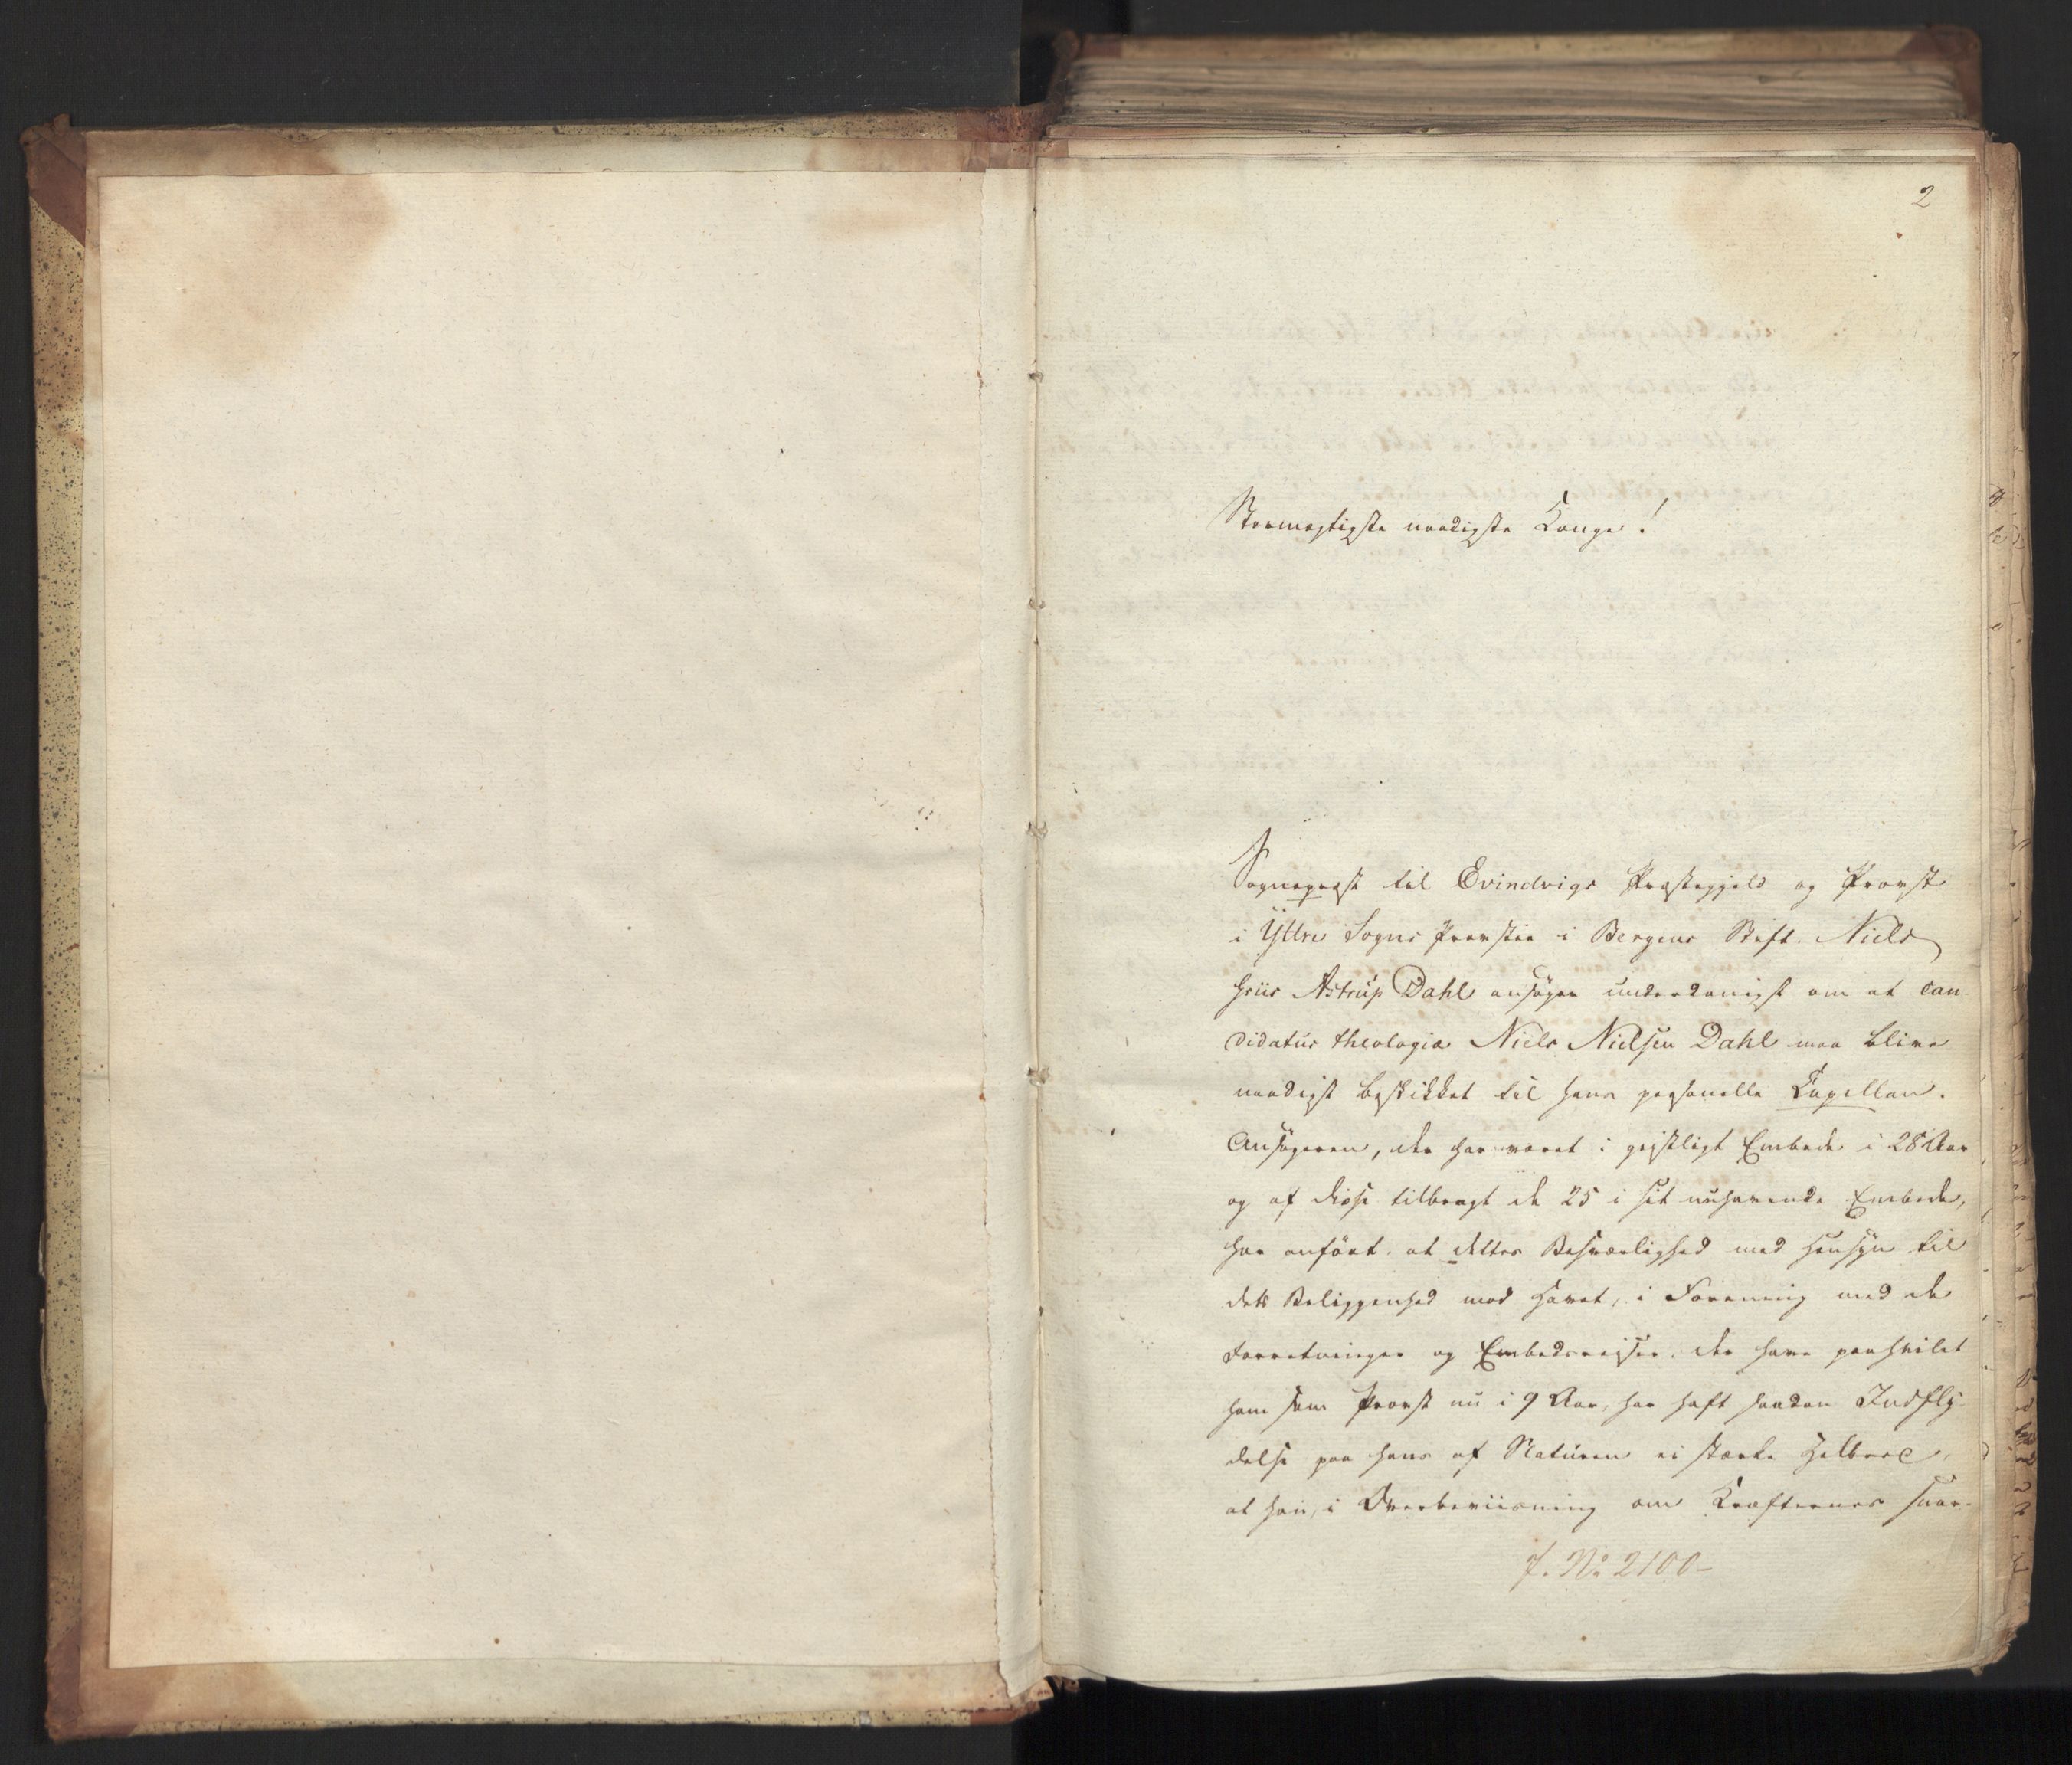 2
Stormægtigste naadigste Konge!
Sognepræst til Evindvigs Præstegjeld og Provst
i Yttre Sogns Provstie i Bergens Stift Niels
Griis Alstrup Dahl ansøger underdanigst om at can-
didatus theologiæ Niels Nielsen Dahl maa blive
naadigst beskikket til hans personelle Capellan.
Ansøgeren, der har været i geistligt Embede i 28 Aar
og af disse tilbragt de 25 i sit nuhavende Embede,
har anført at dettes Besværlighed med Hensyn til
dets Beliggenhed mod Havet, i Forening med de
Forretninger og Embedsreiser, der have paahvilet
ham som Provst nu i 9 Aar, har haft saadan Indfly-
delse paa hans af Naturen ei stærke Helbred,
at han, i Overbeviisning om Kræfternes snar-
J. No 2100-